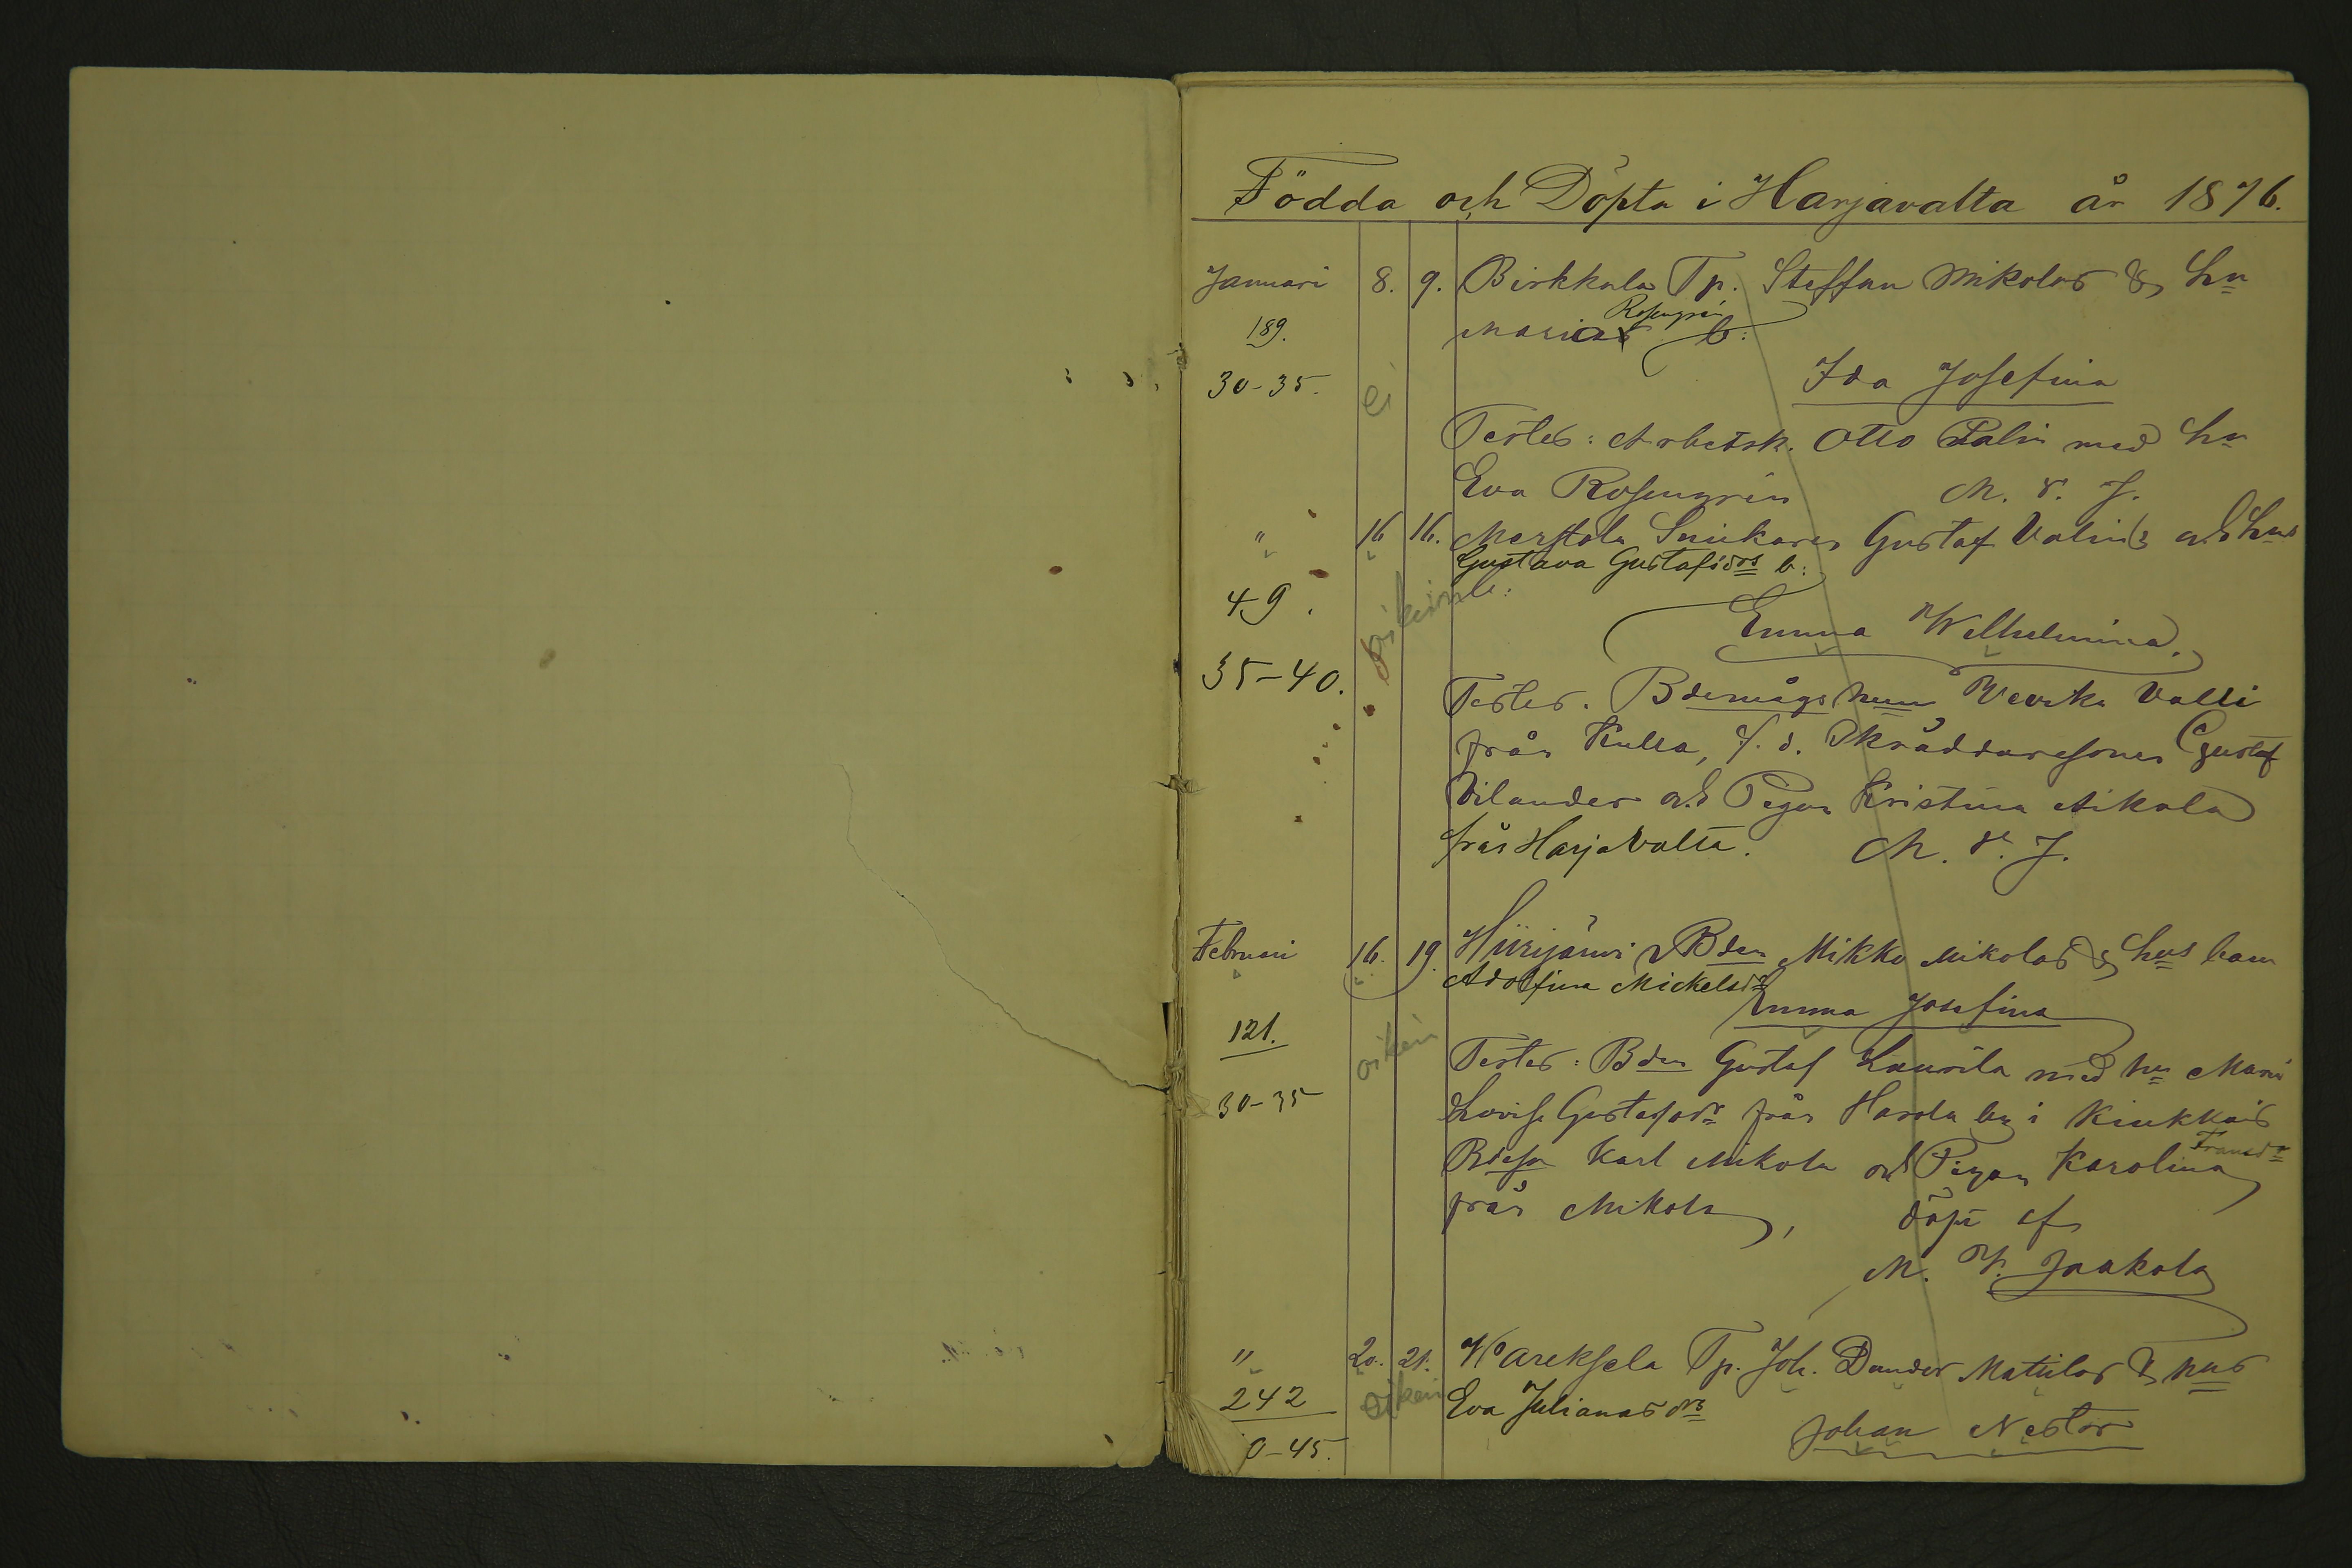 Födda och Döpta i Harjavalta år 1876.
Januari 8. 9. Birkkala Tp. Steffan Mikolas & hu
189. Marias Rosengrén b:
30-35. ei Ida Josefina
Testes: Arbetsk. Otto Palin med hu
Eva Rosengrén M. V. J.
" 16 16. Merstola Snickaren Gustaf Valins och hus
Gustava Gustafsdrs b:
49. oikein
Emma Wilhelmina.
35-40.
Testes. Bdemågs hum Valli
från Kulla, f. d. Skräddaresonen Gustaf
Vilander och Pigan Kristina Mikola
från Harjavalta. M. V. J.
Februari 16. 19. Hiirijärvi Bden Mikko Mikolas & hus barn
Adolfina Mickelsdr
Emma Josefina
121. oikein
Testes: Bden Gustaf Laurila med hu Maria
30-35
Lovisa Gustafsdr från Harola by i Kiukkais
Bdeson Karl Mikola och Pigan Karolina Fransdr
från Mikola, döpt af
M. V. Jaakola
" 20. 21. Wareksela Tp. Joh. Dander Matiilas & hus
242 oikein Eva Julianas drs
Johan Nestor
0-45.